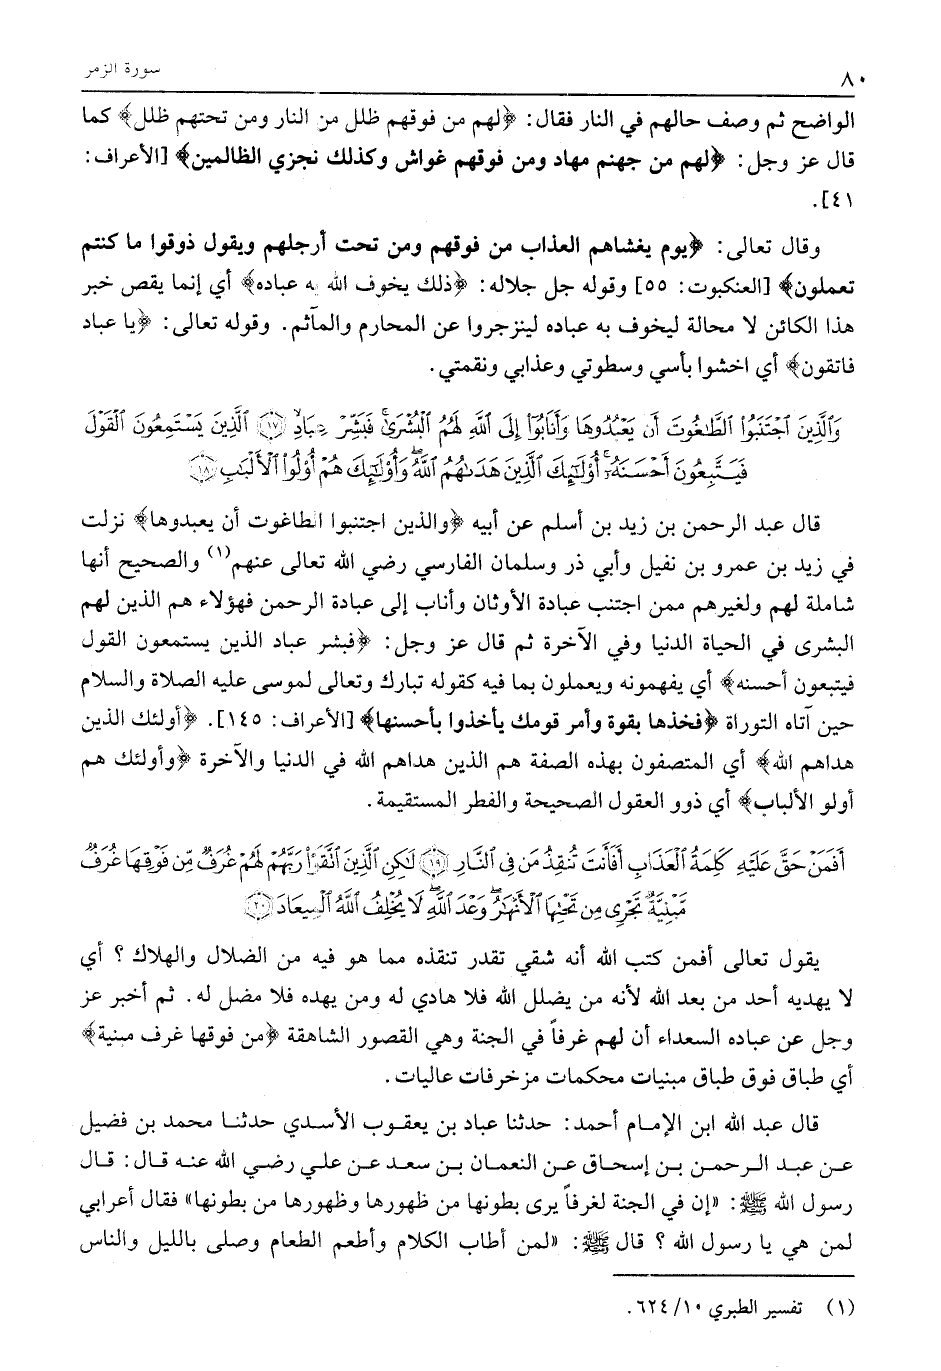 ٨٠
سورة الزمر
الواضح ثم وصف حالهم في النار فقال: ﴿لهم من فوقهم ظلل من النار ومن تحتهم ظلل﴾ كما
قال عز وجل: ﴿لهم من جهنم مهاد ومن فوقهم غواش وكذلك نجزي الظالمين﴾ [الأعراف:
٤١].
وقال تعالى: ﴿يوم يغشاهم العذاب من فوقهم ومن تحت أرجلهم ويقول ذوقوا ما كنتم
تعملون﴾ [العنكبوت: ٥٥] وقوله جل جلاله: ﴿ذلك يخوف الله به عباده﴾ أي إنما يقص خبر
هذا الكائن لا محالة ليخوف به عباده لينزجروا عن المحارم والمآثم. وقوله تعالى: ﴿يا عباد
فاتقون﴾ أي اخشوا بأسي وسطوتي وعذابي ونقمتي.
وَٱلَّذِينَ ٱجْتَنَبُوا۟ ٱلطَّٰغُوتَ أَن يَعْبُدُوهَا وَأَنَابُوٓا۟ إِلَى ٱللَّهِ لَهُمُ ٱلْبُشْرَىٰ ۚ فَبَشِّرْ عِبَادِ ﴿١٧﴾ ٱلَّذِينَ يَسْتَمِعُونَ ٱلْقَوْلَ
فَيَتَّبِعُونَ أَحْسَنَهُۥٓ ۚ أُو۟لَٰٓئِكَ ٱلَّذِينَ هَدَىٰهُمُ ٱللَّهُ ۖ وَأُو۟لَٰٓئِكَ هُمْ أُو۟لُوا۟ ٱلْأَلْبَٰبِ ﴿١٨﴾
قال عبد الرحمن بن زيد بن أسلم عن أبيه ﴿والذين اجتنبوا الطاغوت أن يعبدوها﴾ نزلت
في زيد بن عمرو بن نفيل وأبي ذر وسلمان الفارسي رضي الله تعالى عنهم(١) والصحيح أنها
شاملة لهم ولغيرهم ممن اجتنب عبادة الأوثان وأناب إلى عبادة الرحمن فهؤلاء هم الذين لهم
البشرى في الحياة الدنيا وفي الآخرة ثم قال عز وجل: ﴿فبشر عباد الذين يستمعون القول
فيتبعون أحسنه﴾ أي يفهمونه ويعملون بما فيه كقوله تبارك وتعالى لموسى عليه الصلاة والسلام
حين آتاه التوراة ﴿فخذها بقوة وأمر قومك يأخذوا بأحسنها﴾ [الأعراف: ١٤٥]. ﴿أولئك الذين
هداهم الله﴾ أي المتصفون بهذه الصفة هم الذين هداهم الله في الدنيا والآخرة ﴿وأولئك هم
أولو الألباب﴾ أي ذوو العقول الصحيحة والفطر المستقيمة.
أَفَمَنْ حَقَّ عَلَيْهِ كَلِمَةُ ٱلْعَذَابِ أَفَأَنتَ تُنقِذُ مَن فِى ٱلنَّارِ ﴿١٩﴾ لَٰكِنِ ٱلَّذِينَ ٱتَّقَوْا۟ رَبَّهُمْ لَهُمْ غُرَفٌ مِّن فَوْقِهَا غُرَفٌ
مَّبْنِيَّةٌ تَجْرِى مِن تَحْتِهَا ٱلْأَنْهَٰرُ ۖ وَعْدَ ٱللَّهِ ۖ لَا يُخْلِفُ ٱللَّهُ ٱلْمِيعَادَ ﴿٢٠﴾
يقول تعالى أفمن كتب الله أنه شقي تقدر تنقذه مما هو فيه من الضلال والهلاك ؟ أي
لا يهديه أحد من بعد الله لأنه من يضلل الله فلا هادي له ومن يهده فلا مضل له. ثم أخبر عز
وجل عن عباده السعداء أن لهم غرفاً في الجنة وهي القصور الشاهقة ﴿من فوقها غرف مبنية﴾
أي طباق فوق طباق مبنيات محكمات مزخرفات عاليات.
قال عبد الله ابن الإمام أحمد: حدثنا عباد بن يعقوب الأسدي حدثنا محمد بن فضيل
عن عبد الرحمن بن إسحاق عن النعمان بن سعد عن علي رضي الله عنه قال: قال
رسول الله ﷺ: «إن في الجنة لغرفاً يرى بطونها من ظهورها وظهورها من بطونها» فقال أعرابي
لمن هي يا رسول الله ؟ قال ﷺ: «لمن أطاب الكلام وأطعم الطعام وصلى بالليل والناس
(١) تفسير الطبري ١٠/ ٦٢٤.